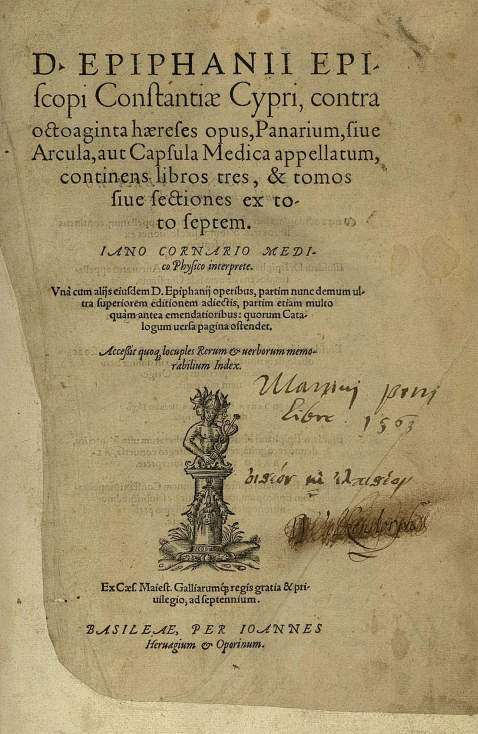 D. EPIPHANII EPI-
scopi Constantiæ Cypri, contra
octoaginta hæreses opus, Panarium, siue
Arcula, aut Capsula Medica appellatum,
continens libros tres, & tomos
siue sectiones ex to-
to septem.
IANO CORNARIO MEDI-
co Physico interprete.
Vnà cum alijs eiusdem D. Epiphanij operibus, partim nunc demum ul-
tra superiorem editionem adiectis, partim etiam multo
quàm antea emendatioribus: quorum Cata-
logum uersa pagina ostendet.
Accessit quoq; locuples Rerum & uerborum memo-
rabilium Index.
Martini
1563
Ex Cæs. Maiest. Galliarumq́; regis gratia & pri-
uilegio, ad septennium.
BASILEAE, PER IOANNES
Heruagium & Oporinum.